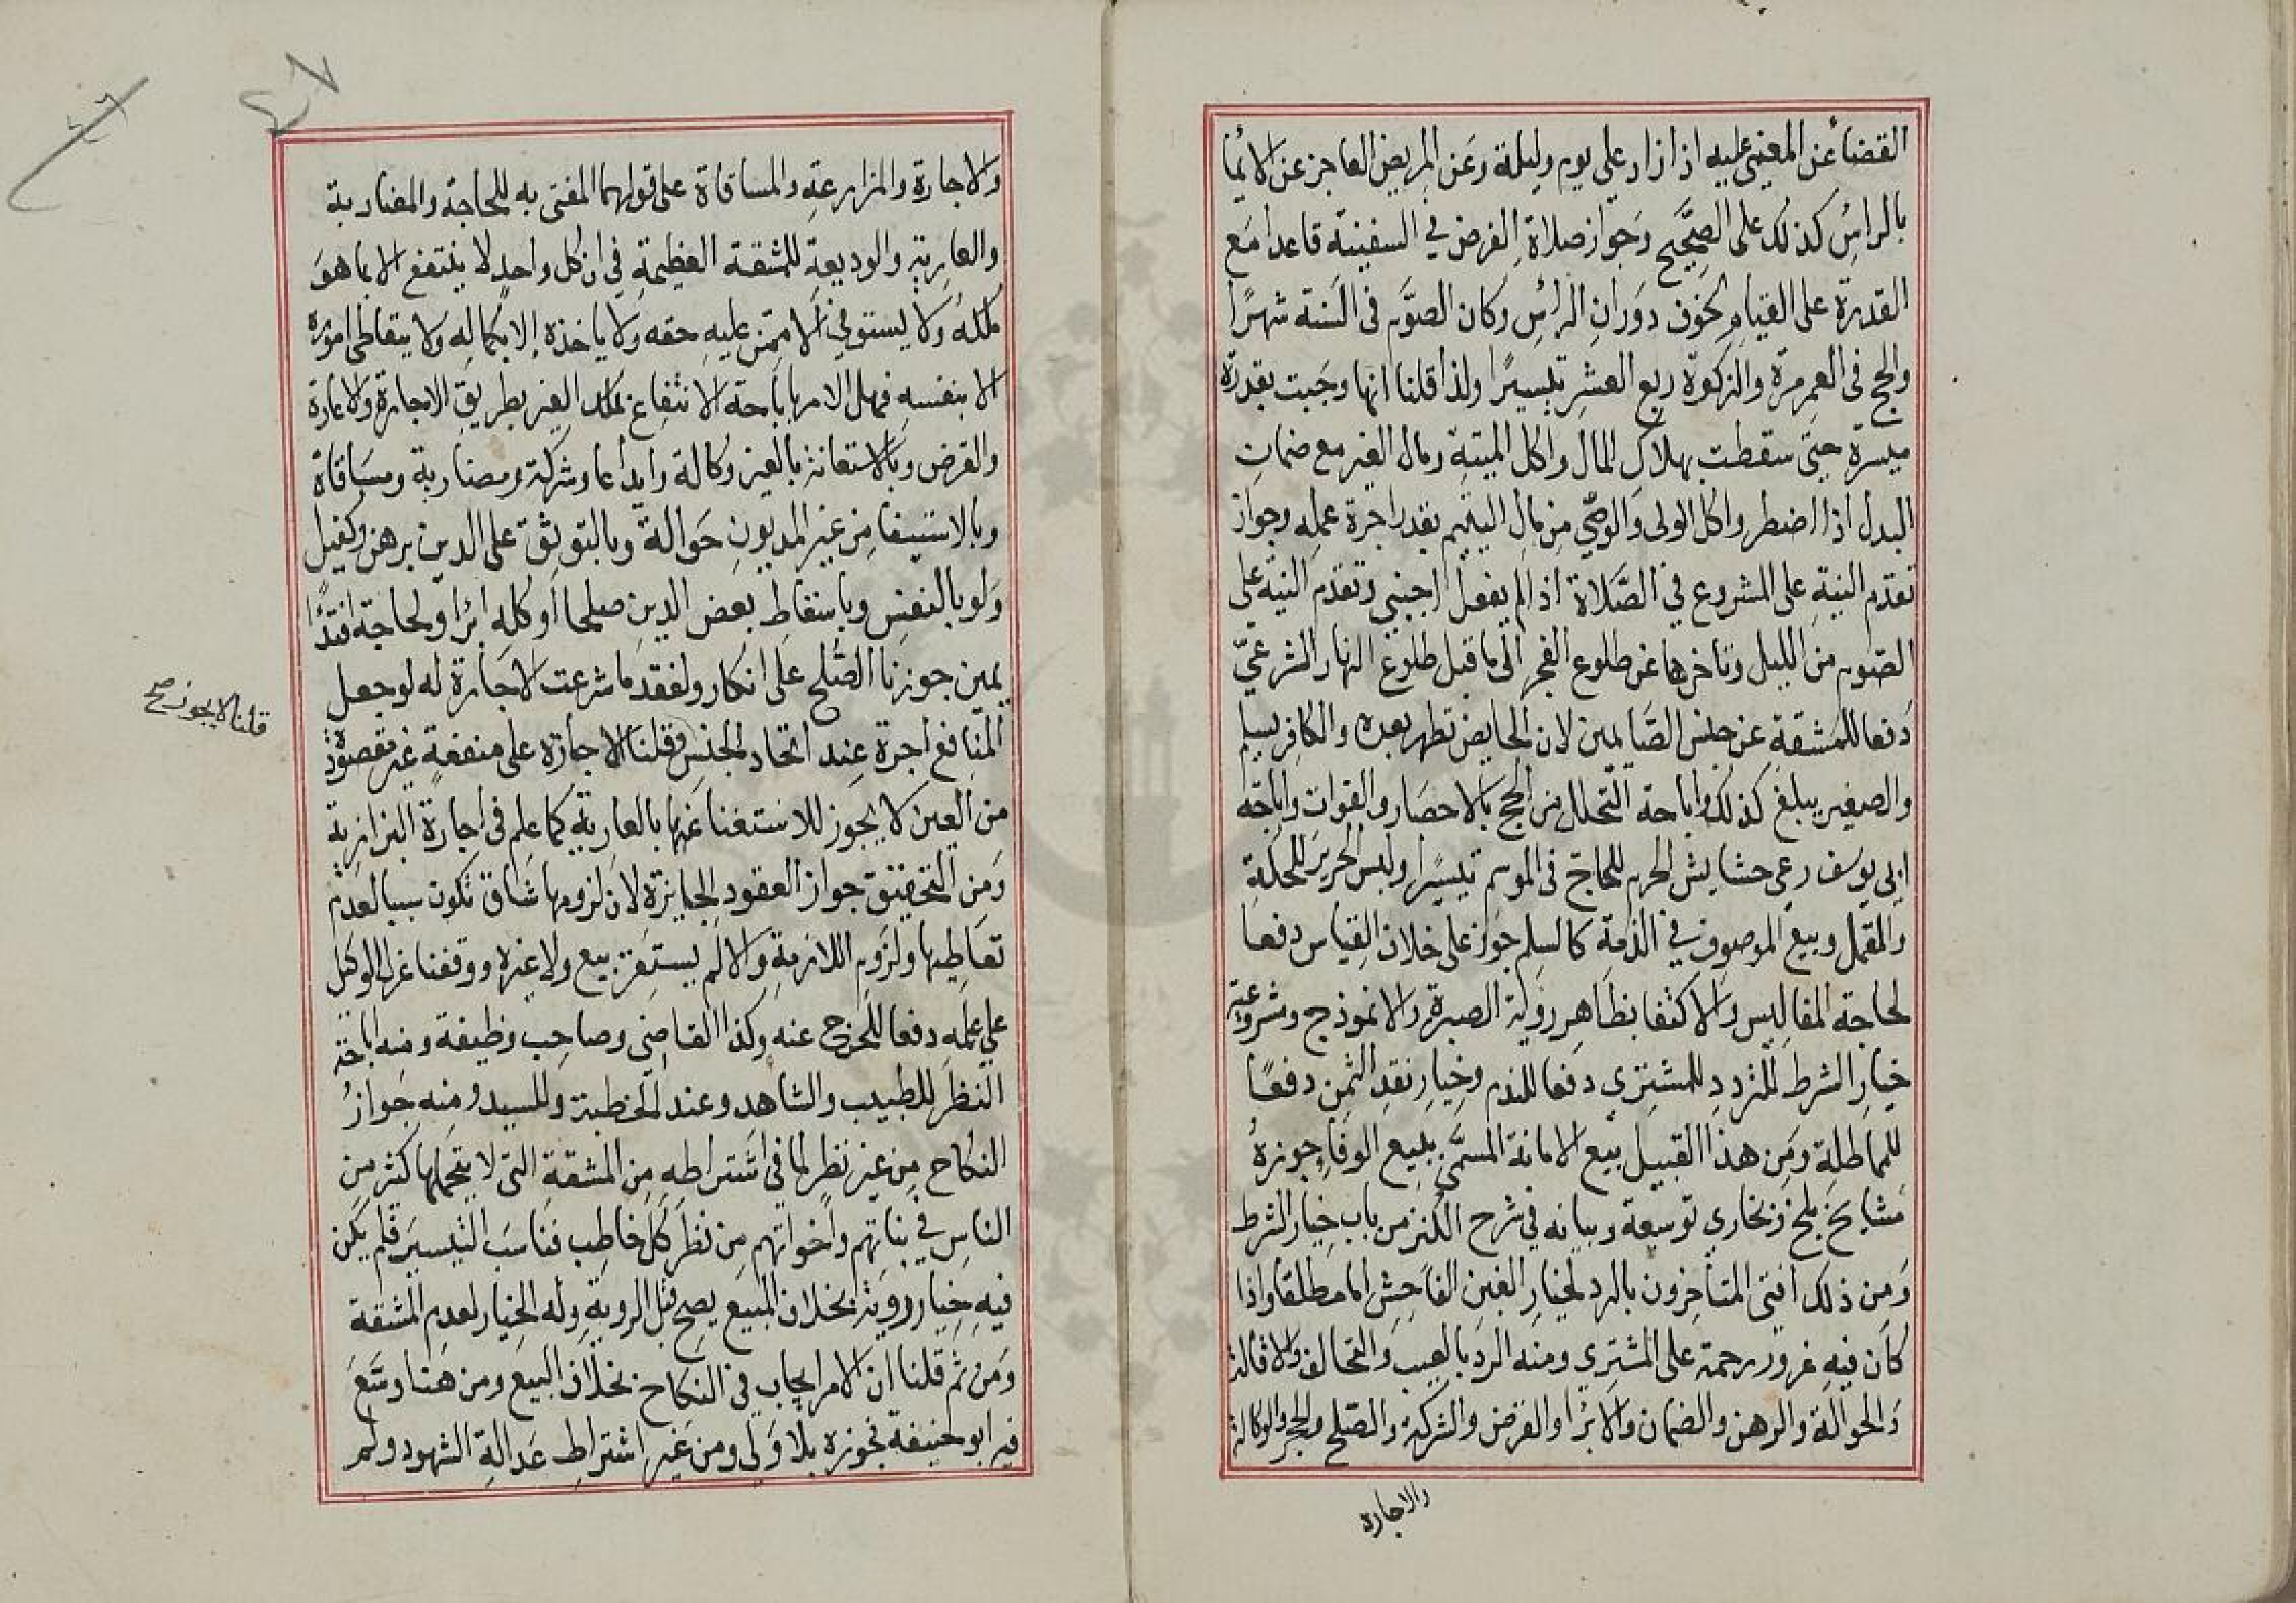 القضاء عن المغمى عليه اذا زاد على يوم وليلة وعن المريض العاجز عن الايما
بالراس كذلك على الصحيح وجواز صلاة الفرض في السفينة قاعدا مع
القدرة على القيام لخوف دوران الراس وكان الصوم في السنة شهرا
والحج في العمر مرة والزكوة ربع العشر تيسيرا ولذا قلنا انها وجبت بقدرة
ميسرة حتى سقطت بهلاك المال واكل الميتة ومال الغير مع ضمان
البدل اذا اضطر واكل الولى والوصي من مال اليتيم بقدر اجرة عمله وجواز
تقدم النية على الشروع في الصلاة اذا لم يفعل اجنبي وتقدم النية على
الصوم من الليل وتاخرها عن طلوع الفجر الى ما قبل طلوع النهار الشرعي
دفعا للمشقة عن جنس الصايمين لان الحايض تطهر بعده والكافر يسلم
والصغير يبلغ كذلك واباحة التحلل من الحج بالاحصار والفوات واباحة
ابي يوسف رعي حشايش الحرم للحاج في الموسم تيسيرا ولبس الحرير للحكة
والقمل وبيع الموصوف في الذمة كالسلم جوز على خلاف القياس دفعا
لحاجة المفاليس والاكتفا بظاهر روية الصبرة والانموذج ومشروعية
خيار الشرط للتردد للمشتري دفعا للندم وخيار نقد الثمن دفعا
للمماطلة ومن هذا القبيل بيع الامانة المسمى ببيع الوفا جوزه
مشايخ بلخ وبخاري توسعة وبيانه في شرح الكنز من باب خيار الشرط
ومن ذلك افتى المتاخرون بالرد لخيار الغبن الفاحش اما مطلقا واذا
كان فيه غرور رحمة على المشتري ومنه الرد بالعيب والتحالف والاقالة
والحوالة والرهن والضمان والابرا والقرض والشركة والصلح والحجر والوكالة
والاجارة
٤٧
٤٦
والاجارة والمزارعة والمساقاة على قولهما المفتى به للحاجة والمضاربة
والعارية والوديعة للمشقة العظيمة في ان كل واحد لا ينتفع الا بما هو
ملكه ولا يستوفي الا ممن عليه حقه ولا ياخذه الا بكماله ولا يتعاطى اموره
الا بنفسه فسهل الامر باباحة الانتفاع بملك الغير بطريق الاجارة والاعارة
والقرض وبالاستعانة بالغير وكالة وايداعا وشركة ومضاربة ومساقاة
وبالاستيفا من غير المديون حوالة وبالتوثق على الدين برهن وكفيل
ولو بالنفس وباسقاط بعض الدين صلحا او كله ابرا ولحاجة افتدا
يمين جوزنا الصلح على انكار ولفقد ما شرعت الاجارة له لو جعل
المنافع اجرة عند اتحاد الجنس وقلنا الاجارة على منفعة غير مقصودة
قلنا لا يجوز صح
من العين لا يجوز للاستغنا عنها بالعارية كما علم في اجارة البزازية
ومن التخفيف جواز العقود الجايزة لان لزومها شاق تكون سببا لعدم
تعاطيها ولزوم اللازمة والا لم يستقر بيع ولا غيره ووقفنا عزل الوكيل
على علمه دفعا للحرج عنه وكذا القاضي وصاحب وظيفة ومنه اباحة
النظر للطبيب والشاهد وعند الخطبة وللسيد ومنه جواز
النكاح من غير نظر لما في اشتراطه من المشقة التي لا يتحملها كثير من
الناس في بناتهم واخواتهم من نظر كل خاطب فناسب التيسير فلم يكن
فيه خيار روية بخلاف المبيع يصح قبل الروية وله الخيار لعدم المشقة
ومن ثم قلنا ان الامر ايجاب في النكاح بخلاف البيع ومن هنا وسع
فيه ابو حنيفة فجوزه بلا ولي ومن غير اشتراط عدالة الشهود ولم